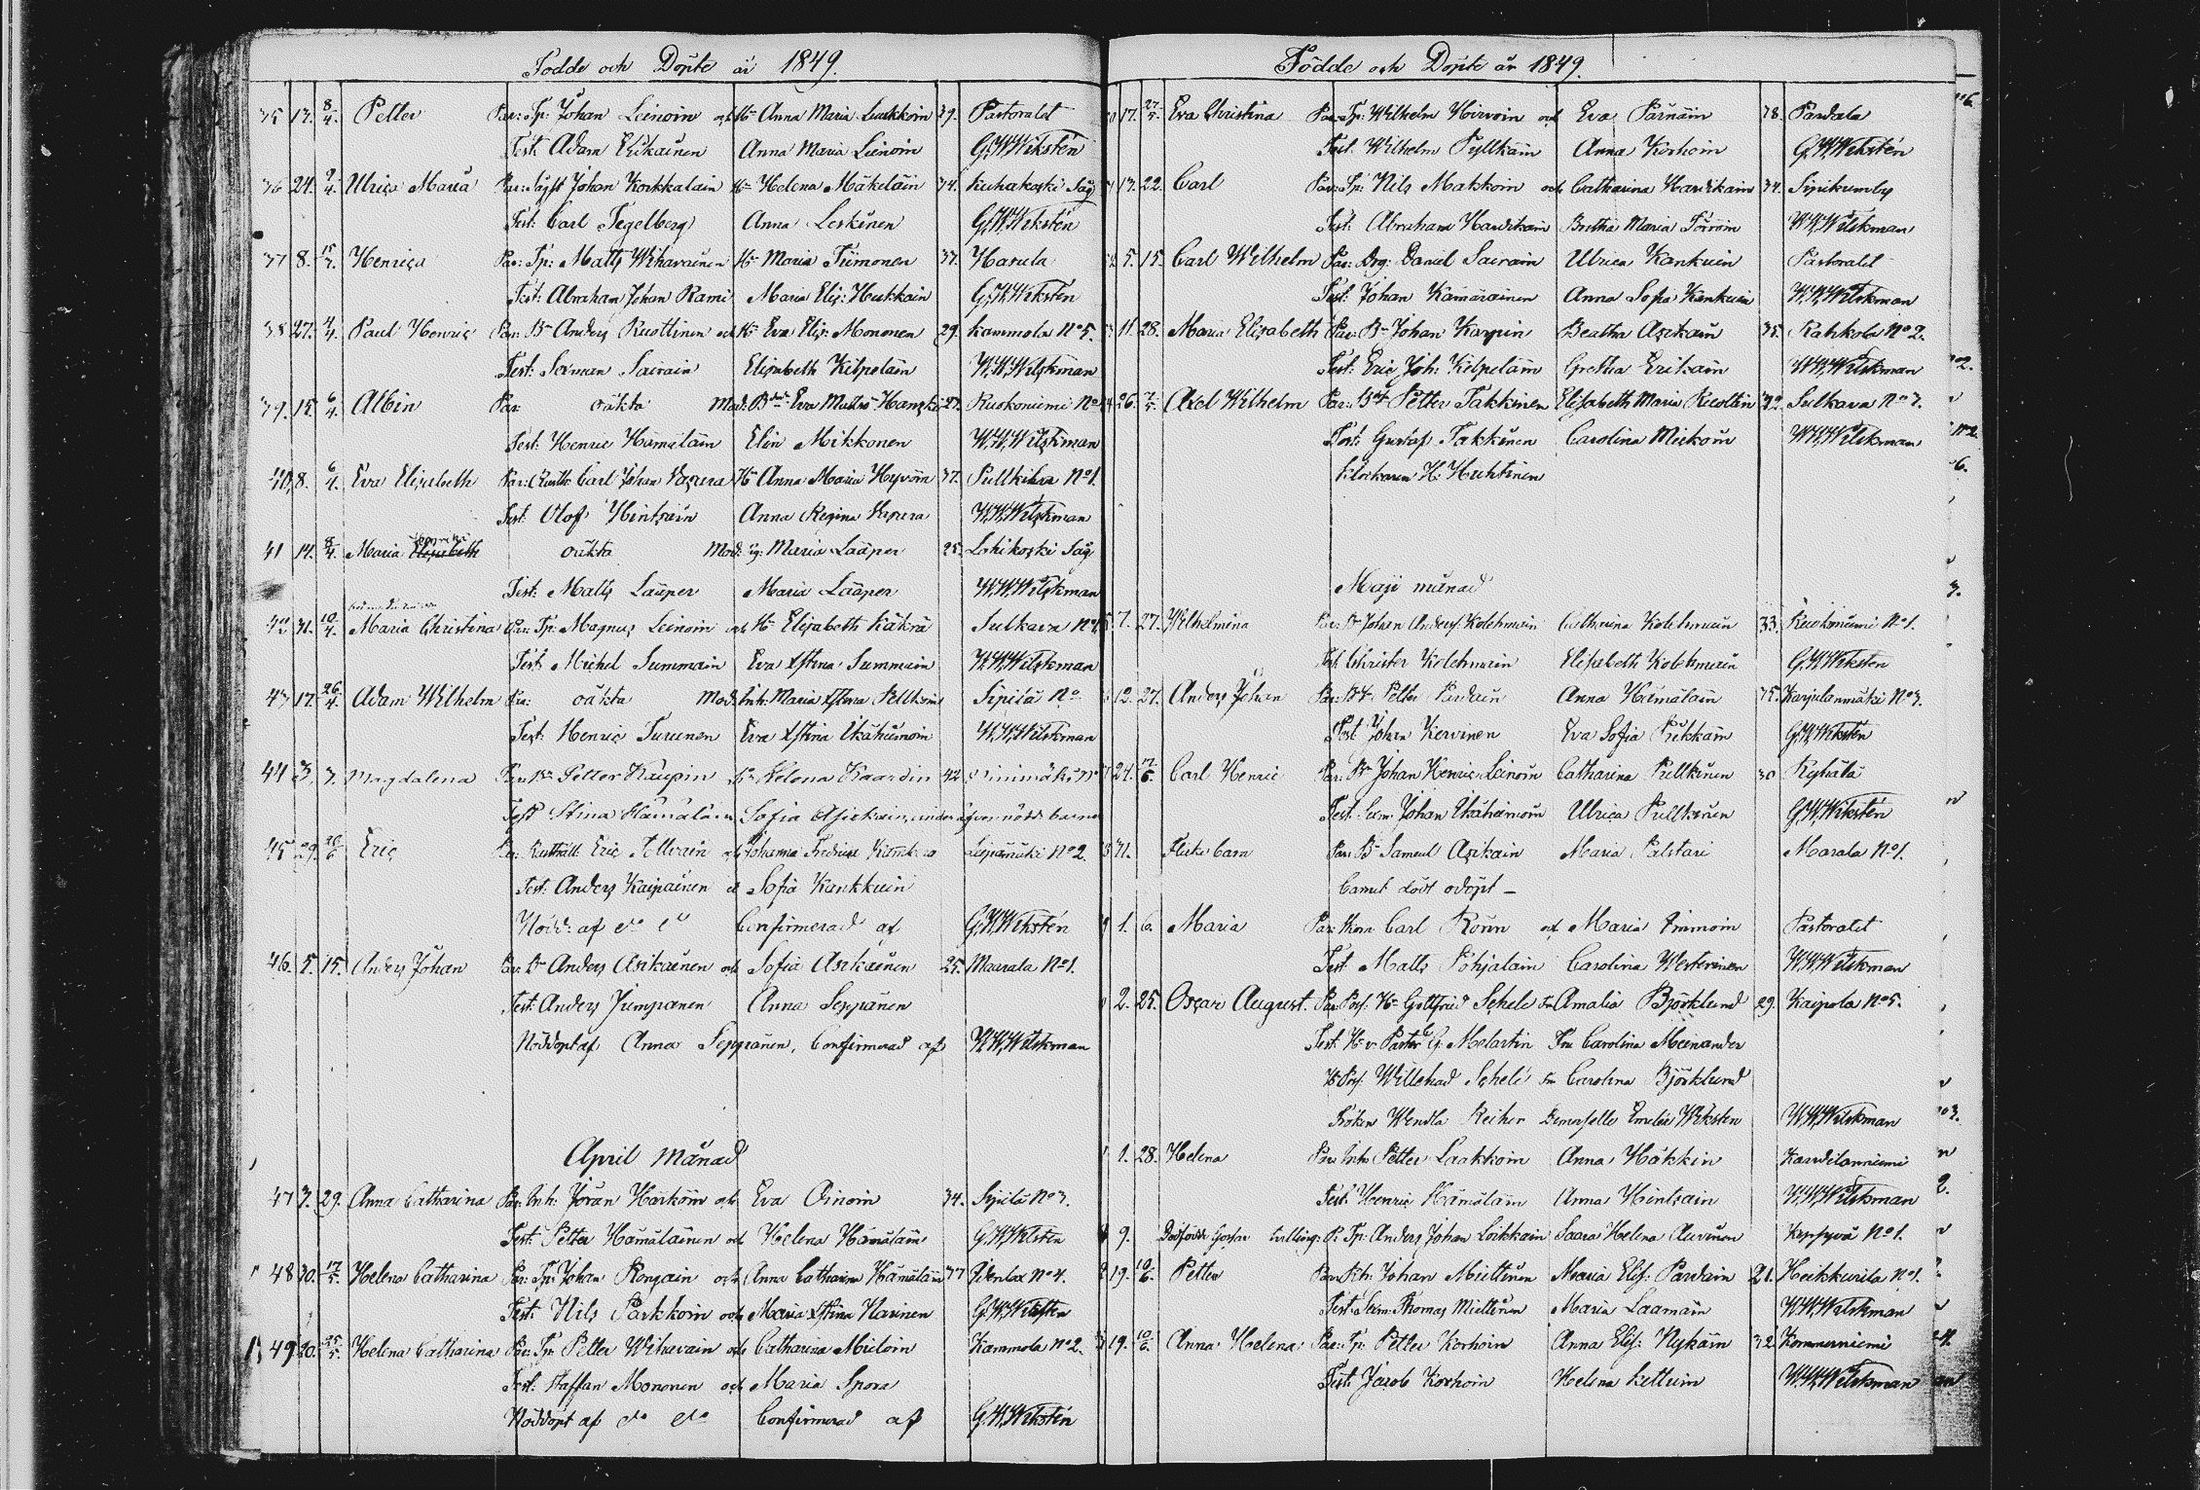 Födde och Döpte år 1849.
35 17. 8/4. Petter Par: Tp: Johan Leinoin och Hu Anna Maria Luukkoin 39. Pastoratet
Test: Adam Eskainen Anna Maria Leinoin G.W.Wikstén
36 24. 9/4. Ulrica Maria Par: Johan Korkkalain Hu Helena Mäkeläin 34. Kuhakoski Såg
Test: Carl Tegelberg Anna Leskinen G.W.Wikstén
37 8. 15/4. Henrica Par: Tp: Matts Wihavainen Hu Maria Tiimonen 37. Harula
Test: Abraham Johan Rami Maria Elis: Heukkain G.W.Wikstén
38 27. 4/4. Paul Henric Par: Bn Anders Ruottinen och Hu Eva Elis: Mononen 29. Kammola No 5.
Test: Herman Sairain Elisabeth Kilpeläin W.W.Wilskman
39. 15. 6/4. Albin Par: oäkta Mod: Eva 27. Ruokoniemi No
Test: Henric Hämäläin Elin Mikkonen W.W.Wilskman
40. 8. 6/4. Eva Elisabeth Par: Carl Johan Vapura Hu Anna Maria Hyvöin 37. Pullkihra No 1.
Test: Olof Hintsain Anna Regina Vapura W.W.Wilskman
41 14. 8/4. Maria Elisabeth oäkta Mod: Maria Lääper 25. Lohikoski Såg
Test: Matts Lääper Maria Lääper W.W.Wilskman
42 31. 10/4. Maria Christina Par: Tp: Magnus Leinoin och Hu Elisabeth Käkrä Sulkava No
Test: Michel Summain Eva Xstina Summain W.W.Wilskman
43 17. 26/4. Adam Wilhelm Par: oäkta Mod: Inh: Maria Xstina Pellkoin Sipilä No
Test: Henric Turunen Eva Xstina Ikäheimoin W.W.Wilskman
44 3. 3. Magdalena Par: Bn Petter Kaupin Hu Helena Kaardin 42
Test Stina Hämäläin Sofia
45 29. 26/6 Eric Par: Eric och Johanna No 2.
Test: Anders Kaipainen Sofia Kankkuin
Nödd: af do do Confirmerad af G.W.Wikstén
46. 5. 15. Anders Johan Par: Bn Anders Asikainen och Sofia Asikainen 25. Maarala No 1.
Test: Anders Jumpanen Anna Seppänen
Nöddöpt af Anna Seppänen, Confirmerad af W.W.Wilskman
April Månad
47 3. 29. Anna Catharina Par: Inh: Jöran Harkoin och Eva Oinoin 34. Sipilä No 3.
Test: Petter Hämäläinen och Helena Hämäläin G.W.Wikstén
48 30. 17/5. Helena Catharina Par: Tp: Johan Rongain och Anna Catharina Hämäläin 37 Idenlax No 4.
Test: Nils Parkkoin och Maria Xstina Harinen G.W.Wikstén
49 20. 25/5. Helena Catharina Par: Tp: Petter Wihavain och Catharina Mieloin Kammola No 2.
Test: Staffan Mononen och Maria Spora
Nöddöpt af do do Confirmerad af G.W.Wikstén
Födde och Döpte år 1849.
17. 27/5. Eva Christina Par: Tp: Wilhelm Hirvoin och Eva Pärnäin 38. Pardala
Test. Wilhelm Pyllkäin Anna Korhoin G.W.Wikstén
17. 22. Carl Par: Tp: Nils Makkoin och Catharina Handikain 34. Sipikumby
Test: Abraham Handikain Bretha Maria Töiröin W.W.Wilskman
5. 15. Carl Wilhelm Par: Drg: Daniel Sairain Ulrica Kankuin Pastoratet
Test: Johan Kämäräinen Anna Sofia Kankuin W.W.Wilskman
11. 28. Maria Elisabeth Par: Bn Johan Karpin Beatha Asikain 35. Rahkola No 2.
Test: Eric Joh: Kilpeläin Gretha Erikain W.W.Wilskman
26. 7/5. Axel Wilhelm Par: Petter Takkinen Elisabeth Maria Ruottin 42. Sulkava No 7.
Test: Gustaf Takkinen Carolina Mickoin W.W.Wilskman
Klockaren H. Huhtinen
Maji månad
7. 27. Wilhelmina Par: Bn Johan Anders: Kolehmain Catharina Kolehmain 33. Ruokoniemi No 1.
Test Christer Kolehmain Elisabeth Kolehmain G.W.Wikstén
12. 27. Anders Johan Par: Petter Pardain Anna Hämäläin 35. Karjulanmäki No 3.
Test: Johan Kervinen Eva Sofia Pirkkain G.W.Wikstén
24. 17/6. Carl Henric Par: Bn Johan Henric Leinoin Catharina Pullkinen 30 Kyhälä
Test. Johan Ikäheimoin Ulrica Pullkinen G.W.Wikstén
31. Flicke barn Par: Bn Samuel Asikain Maria Palstari Marala No 1.
Barnet dödt odöpt –
1. 6. Maria Par: Carl Röiin och Maria Immoin Pastoratet
Test Matts Pöhjälain Carolina Westerinen W.W.Wilskman
2. 25. Oscar August. Par: Hr Gottfrid Schele Fru Amalia Björklund 29. Kaipola No 5.
Test: Hr v. Pastor G: Melartin Fru Carolina Meinander
Willehad Schele Fru Carolina Björklund
Fröken Wendla Reiher Demoiselle Emelie Wikstén W.W.Wilskman
1. 28. Helena Par: Inh: Petter Laakkoin Anna Häkkin Kardilanniemi
Test: Henric Hämäläin Anna Hintsain W.W.Wilskman
9. Dödfödde Gossar tvilling: P: Tp: Anders Johan Loikkain Saara Helena Auvinen No 1.
19. 10/6. Petter Par: Johan Miettinen Maria Elis: Pardain 21. Heikkurila No 1.
Test: Thomas Miettinen Maria Laamain W.W.Wilskman
19. 10/6. Anna Helena Par: Tp: Petter Korhoin Anna Elis: Nykäin 32 Kommerniemi
Test: Jacob Korhoin Helena Kettuin W.W.Wilskman